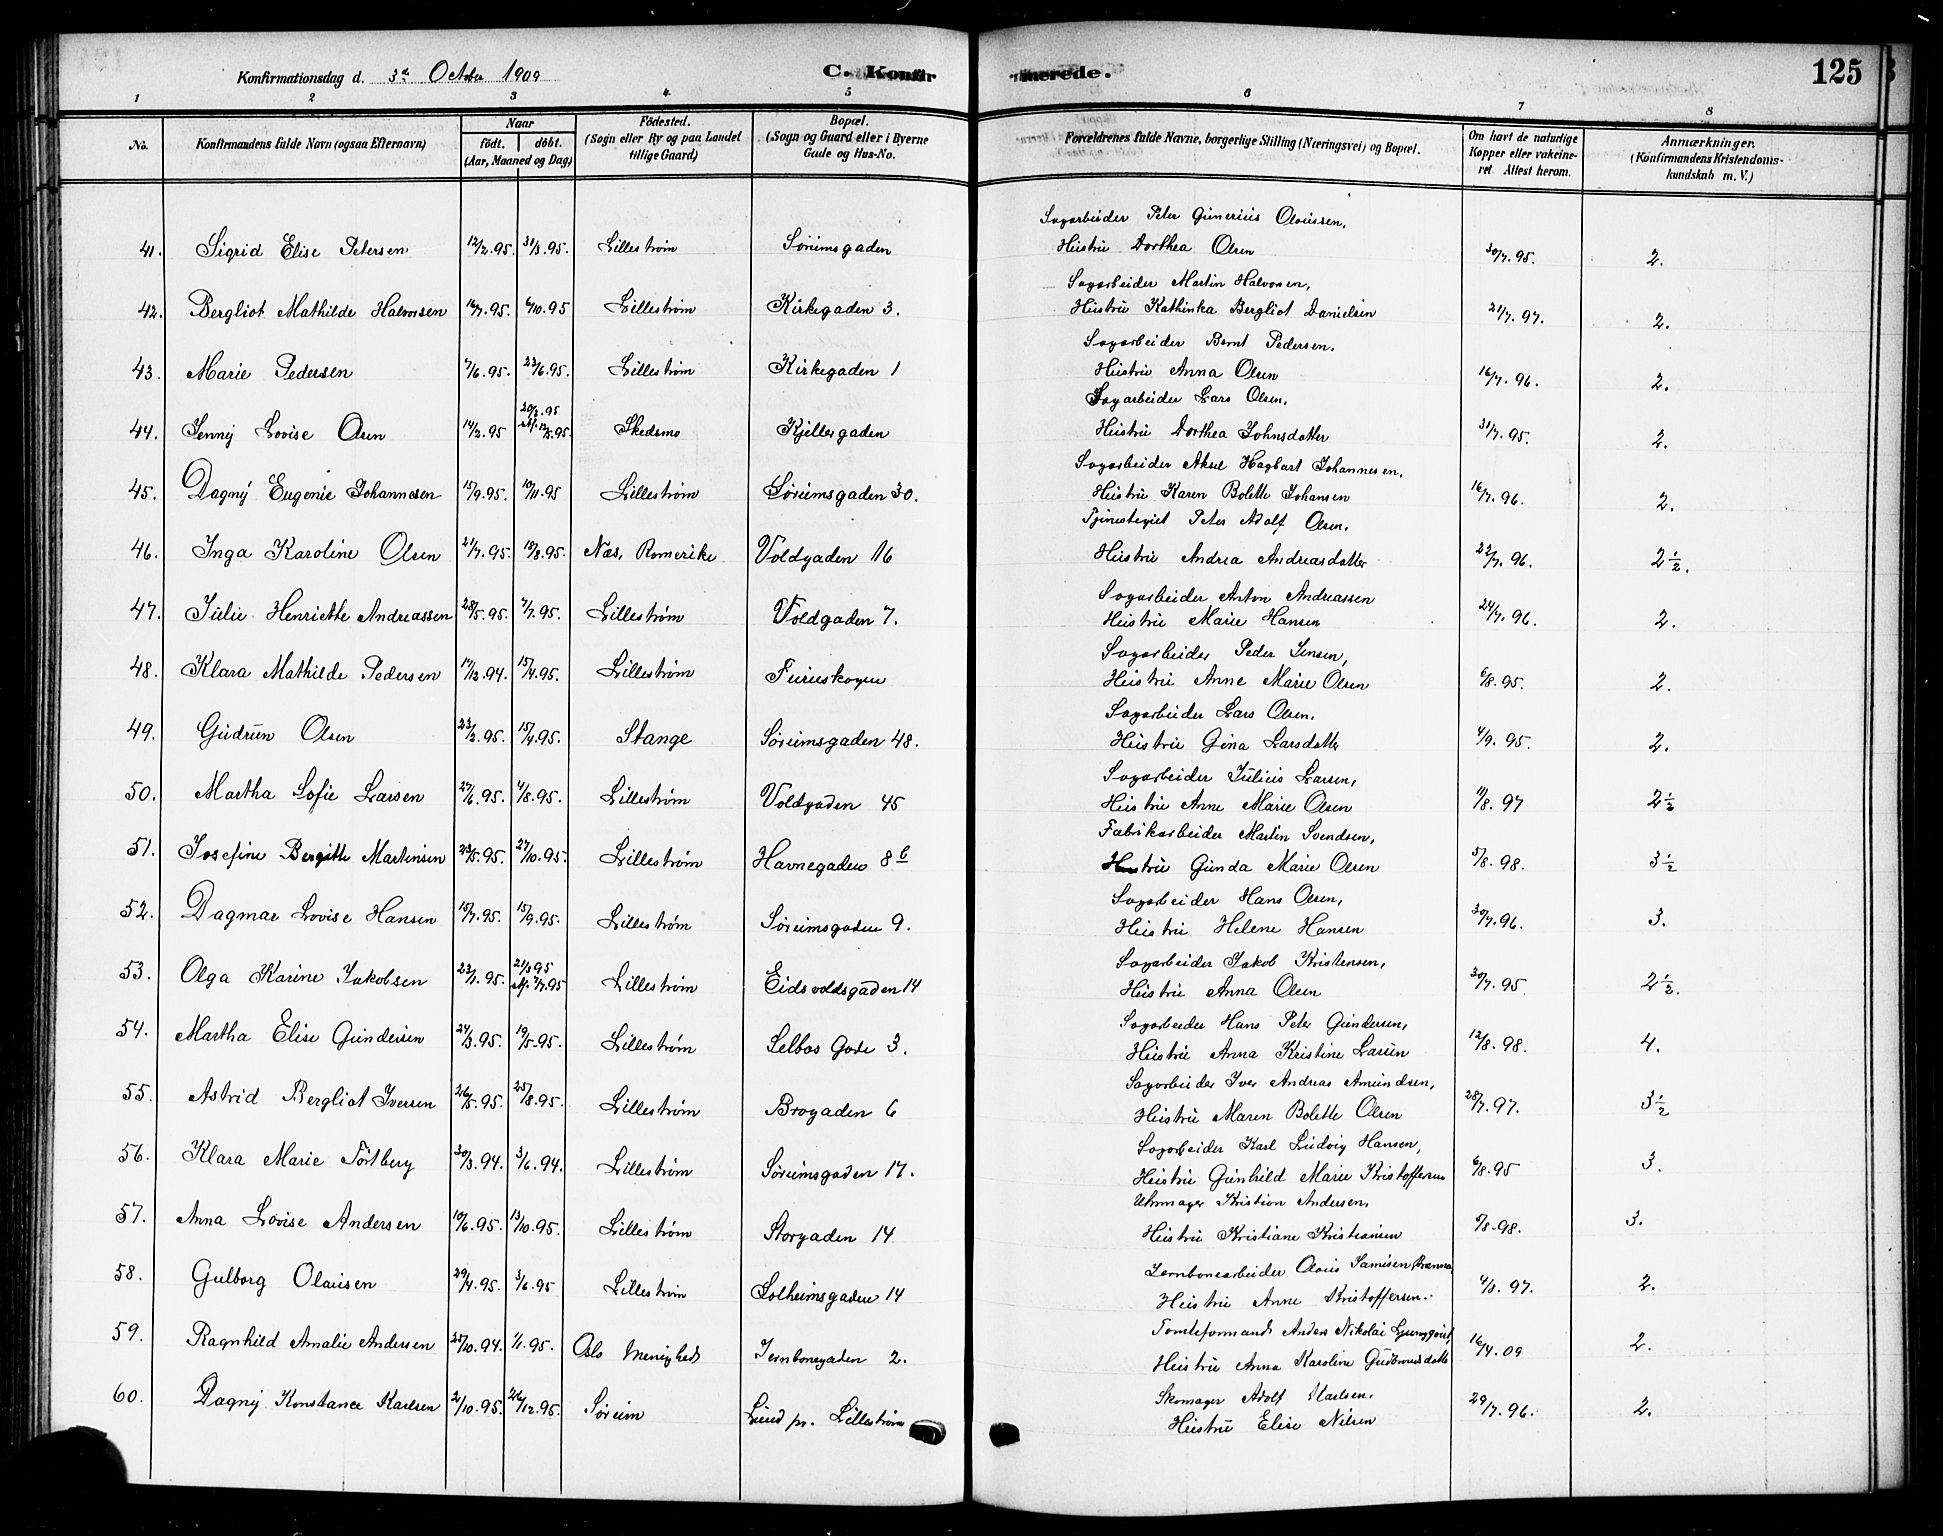 Konfirmationsdag d. 3d October 1909 C. Konfirmerede. 125
1 2 3 4 5 6 7 8
No. Konfirmandens fulde Navn (ogsaa Efternavn) Naar födt. döbt. (Aar, Maaned og Dag) Födested. (Sogn eller By og paa Landet tillige Gaard) Bopæl. (Sogn og Gaard eller i Byerne Gade og Hus-No. Forældrenes fulde Navne, borgerlige Stilling (Næringsvei) og Bopæl. Om havt de naturlige Kopper eller vakcineret. Attest herom. Anmærkninger. (Konfirmandens Kristendomskundskab m. V.)
Sagarbeider Peter Gunerius Olaussen,
41. Sigrid Elise Petersen 12/2.95. 31/3.95. Lillestrøm Sørumsgaden Hustru Dorthea Olsen 30/7.95. 2.
Sagarbeider Martin Halvorsen,
42. Bergliot Mathilde Halvorsen 16/7.95. 6/10.95 Lillestrøm Kirkegaden 3. Hustru Kathinka Bergliot Danielsen 21/7.97. 2.
Sagarbeider Bernt Pedersen,
43. Marie Pedersen 7/6.95. 23/6.95. Lillestrøm Kirkegaden 1 Hustru Anna Olsen 16/7.96. 2.
Sagarbeider Lars Olsen,
44. Jenny Lovise Olsen 14/2.95 20/2.95 Skedsmo Kjellergaden Hustru Dorthea Johnsdatter 31/7.95. 2.
Sagarbeider Aksel Hagbart Johannesen,
45. Dagny Eugenie Johannesen 15/9.95. 10/11.95 Lillestrøm Sørumsgaden 30. Hustru Karen Bolette Johansen 16/7.96. 2.
Peter Adolf Olsen,
46. Inga Karoline Olsen 21/7.95. 18/8.95. Næs, Romerike Voldgaden 16 Hustru Andrea Andreasdatter 22/7.96. 2½.
Sagarbeider Anton Andreassen
47. Julie Henriette Andreassen 28/5.95. 7/7.95. Lillestrøm Voldgaden 7. Hustru Marie Hansen 24/7.96. 2.
Sagarbeider Peder Jensen,
48. Klara Mathilde Pedersen 17/12.94. 15/4.95. Lillestrøm Furuskogen Hustru Anne Marie Olsen 6/8.95. 2.
Sagarbeider Lars Olsen.
49. Gudrun Olsen 23/2.95. 15/4.95. Stange Sørumsgaden 48. Hustru Gina Larsdatter 4/9.95. 2.
Sagarbeider Julius Larsen,
50. Martha Sofie Larsen 27/6.95. 4/8.95. Lillestrøm Voldgaden 45 Hustru Anne Marie Olsen 11/8.97 2½
Fabrikarbeider Martin Svendsen,
51. Josefine Bergitte Martinsen 23/5.95. 27/10.95. Lillestrøm Havnegaden 8 b Hustru Gunda Marie Olsen 5/8.98. 3½
Sagarbeider Hans Olsen,
52. Dagmar Lovise Hansen 15/7.95. 15/9.95. Lillestrøm Sørumsgaden 9. Hustru Helene Hansen 30/7.96. 3.
Sagarbeider Jakob Kristensen,
53. Olga Karine Jakobsen 22/1.95. 21/3 95 Lillestrøm Eidsvoldsgaden 14 Hustru Anna Olsen 30/7.95 2½.
Sagarbeider Hans Peter Gundersen,
54. Martha Elise Gundersen 24/3.95. 19/5.95. Lillestrøm Selbos Gade 3. Hustru Anna Kristine Larsen 12/8.98. 4.
Sagarbeider Iver Andreas Amundsen,
55. Astrid Bergliot Iversen 26/5.95. 25/8.95. Lillestrøm Brogaden 6 Hustru Maren Bolette Olsen 28/7.97. 3½
Sagarbeider Karl Ludvig Hansen,
56. Klara Marie Törtberg 30/3.94. 3/6.94. Lillestrøm Sørumsgaden 17. Hustru Gunhild Marie Kristoffersen 6/8.95 3.
Uhrmager Kristian Andersen,
57. Anna Lovise Andersen 10/6.95. 13/10.95. Lillestrøm Storgaden 14 Hustru Kristiane Kristiansen 5/8.98. 3.
Jernbanearbeider Olaus
58. Gulborg Olausen 29/4.95. 3/6.95 Lillestrøm Solheimsgaden 14 Hustru Anne Kristoffersen. 4/8.97. 2.
Tomteformand Anders Nikolai Ljungqvist,
59. Ragnhild Amalie Andersen 25/10.94. 1/1.95. Oslo Menighed Jernbanegaden 2. Hustru Anna Karoline Gudbrandsdatter 16/4.09 2.
Skomager Adolf Karlsen.
60. Dagny Konstance Karlsen 2/10.95. 26/12.95. Sørum Lund pr. Lillestrøm Hustru Elise Nilsen 29/7.96. 2.